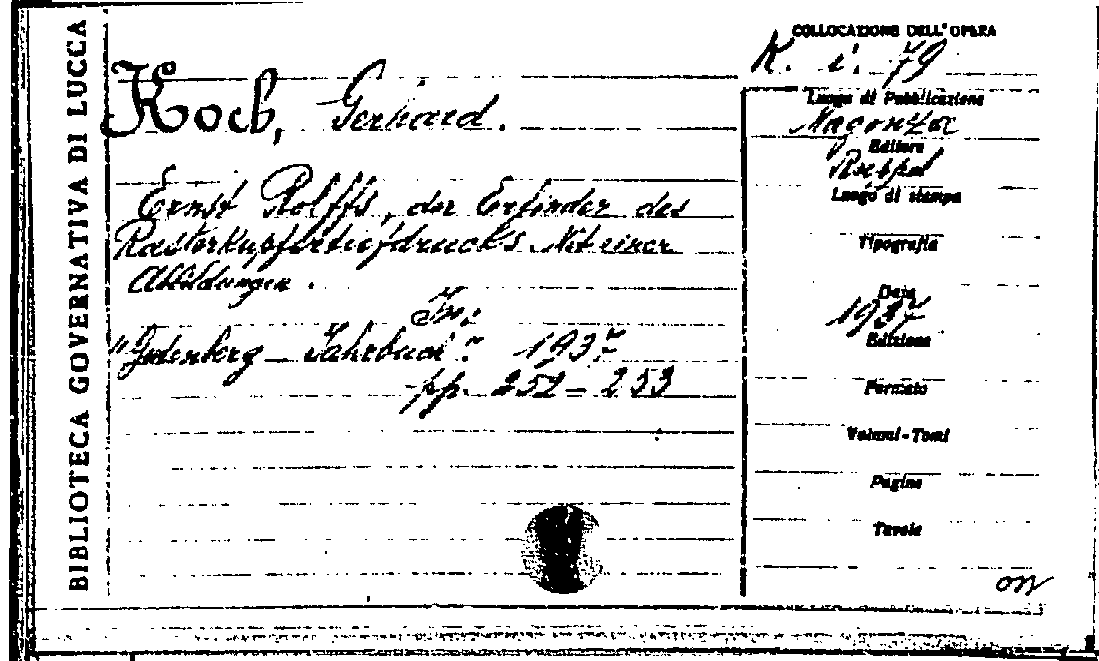 BIBLIOTECA GOVERNATIVA DI LUCCA
Koch, Gerhard.
Ernst Rolffs, der Erfinder des
Rasterkupfertiefdrucks. Mit einer
Abbildungen.
In:
"Gutenberg - Jahrbuch". 1937
pp. 252 - 253
COLLOCAZIONE DELL'OPERA
K. i. 79
Luogo di Pubblicazione
Magonza
Editore
Luogo di stampa
Tipografia
Data
1937
Edizione
Formato
Volumi - Tomi
Pagine
Tavole